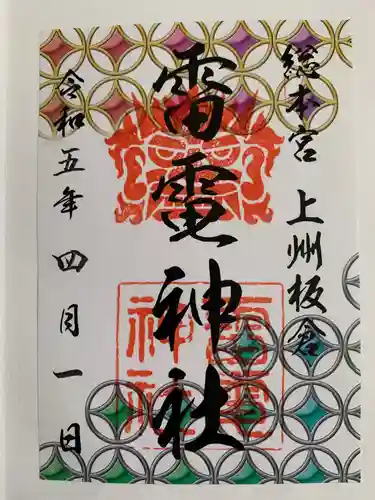 総本宮 上州板倉
雷電神社
令和五年四月一日
雷電神社